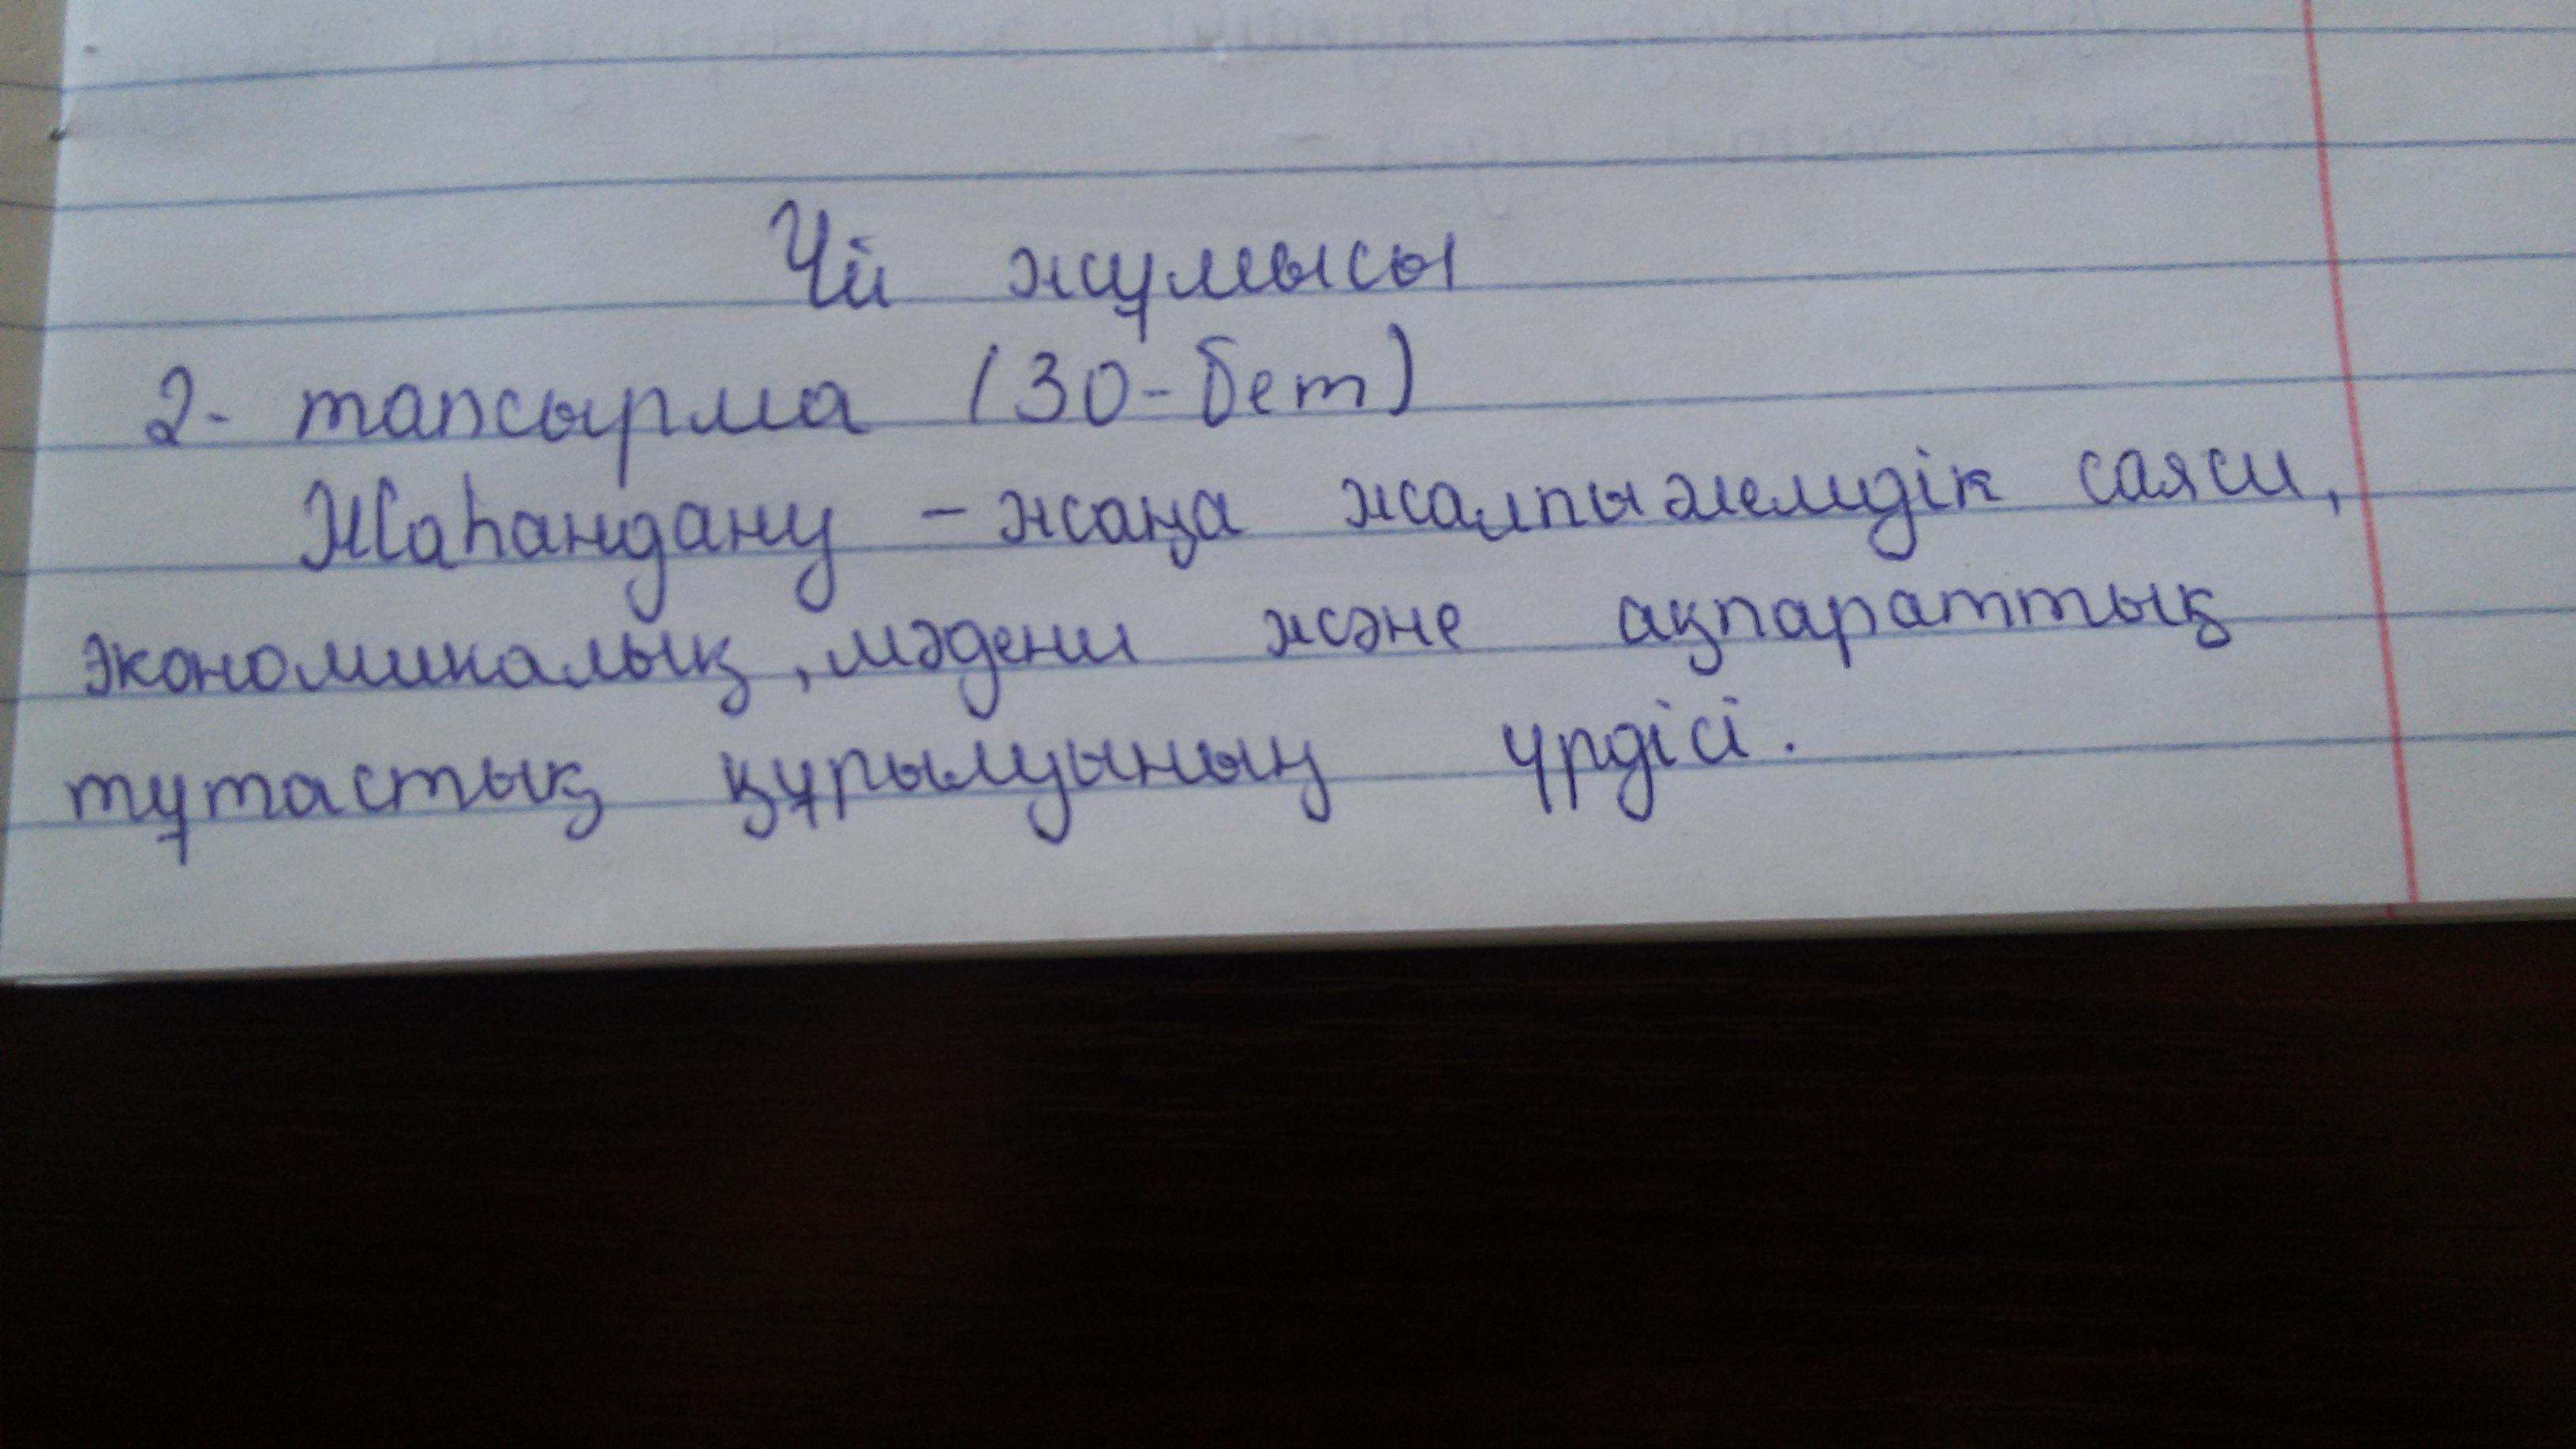 Үй жұмысы
2- тапсырма (30-бет)
Жаһандану – жаңа жалпыәлемдік саяси,
экономикалық, мәдени және ақпараттық
тұтастық құрылуының үрдісі.